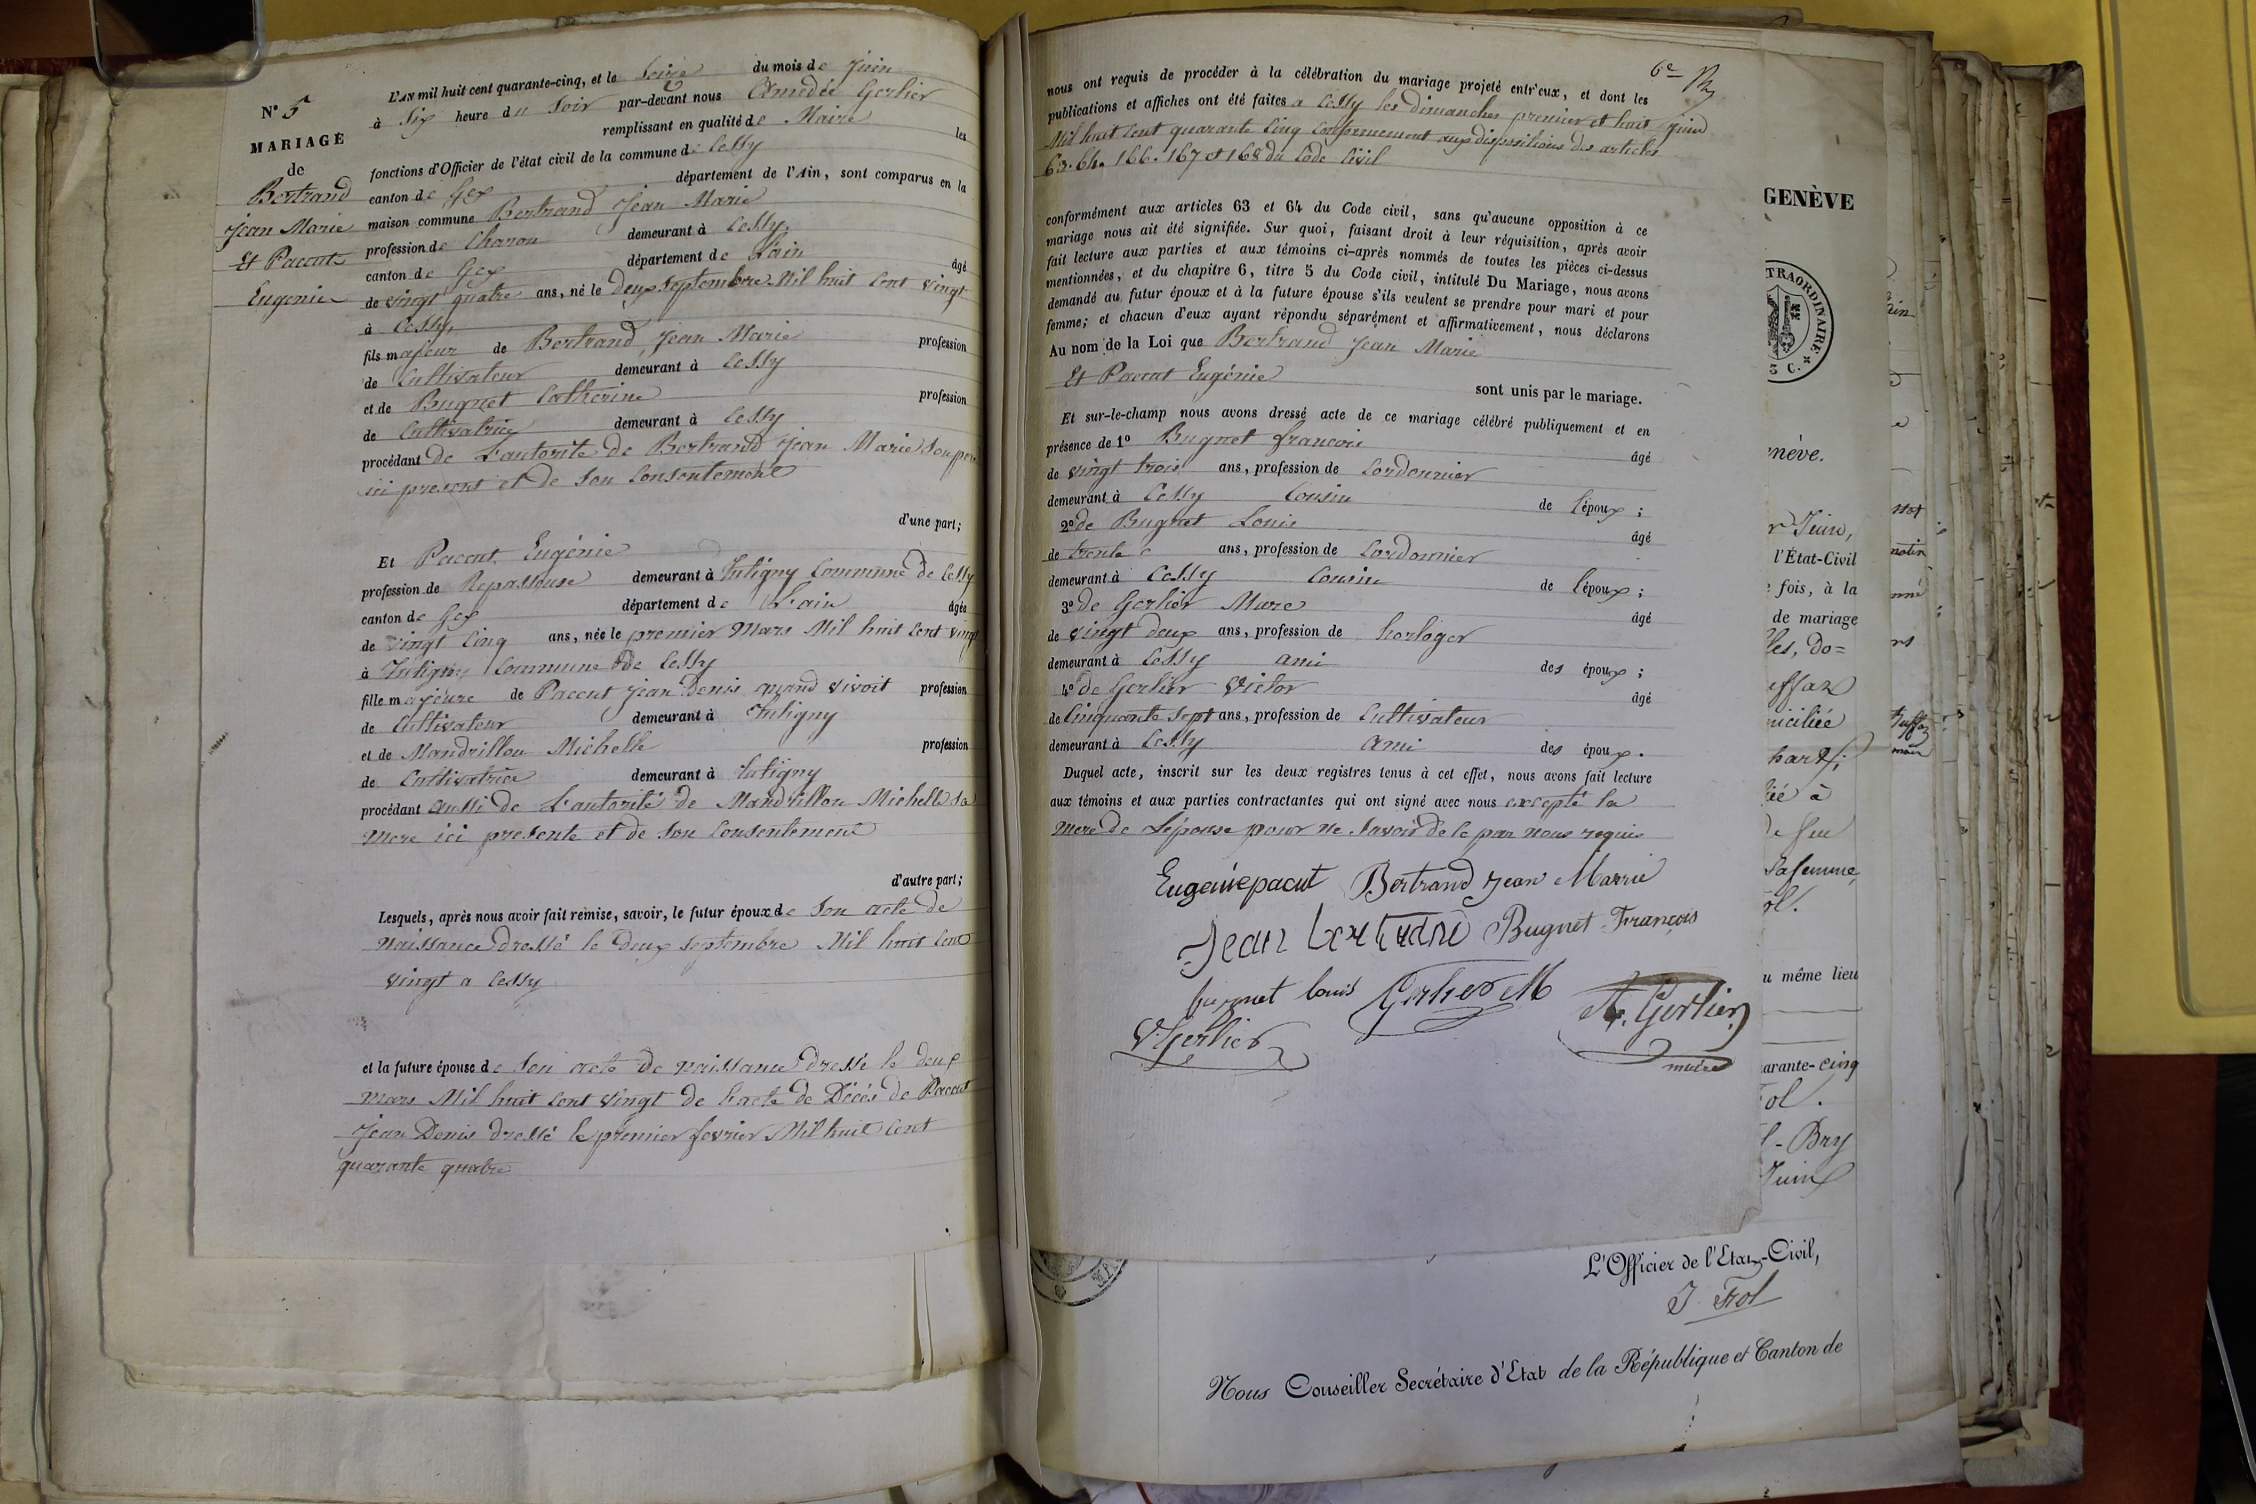 N° 5
MARIAGE
de
Bertrand
Jean Marie
Et Pacout
Eugenie
L'AN mil huit cent quarante-cinq, et le Seize du mois de Juin
à Six heure du Soir par-devant nous Amedée Gerlier
remplissant en qualité de Maire les
fonctions d'Officier de l'état civil de la commune de Cessy
canton de Gex département de l'Ain, sont comparus en la
maison commune Bertrand Jean Marie
profession de Charon demeurant à Cessy,
canton de Gex département de L'ain âgé
de vingt quatre ans, né le Deux Septembre Mil huit Cent vingt
à Cessy,
fils majeur de Bertrand Jean Marie profession
de Cultivateur demeurant à Cessy
et de Bugnet Catherine profession
de Cultivatrice demeurant à Cessy
procédant de L'autorité de Bertrand Jean Marie Son pere
ici present et de Son Consentement
d'une part;
Et Pacout Eugénie
profession de Repasseuse demeurant à Tutigny Commune de Cessy
canton de Gex département de L'ain âgée
de vingt Cinq ans, née le premier Mars Mil huit Cent vingt
à Tutigny Commune de Cessy
fille majeure de Pacout Jean Denis quand vivoit profession
de Cultivateur demeurant à Tutigny
et de Mandrillon Michelle profession
de Cultivatrice demeurant à Tutigny
procédant aussi de L'autorité de Mandrillon Michelle Sa
Mere ici presente et de Son Consentement
d'autre part;
Lesquels, après nous avoir fait remise, savoir, le futur époux de Son acte de
Naissance Dressé le Deux Septembre Mil huit Cent
vingt a Cessy
et la future épouse de Son acte de Naissance Dressé le deux
Mars Mil huit Cent vingt de L'acte de Décés de Pacout
Jean Denis Dressé le premier fevrier Mil huit Cent
quarante quatre
6e
nous ont requis de procéder à la célébration du mariage projeté entr'eux, et dont les
publications et affiches ont été faites a Cessy les dimanches premier et huit juin
Mil huit Cent quarante Cinq Conformement aux dispositions des articles
63. 64. 166. 167 et 168 du Code Civil
conformément aux articles 63 et 64 du Code civil, sans qu'aucune opposition à ce
mariage nous ait été signifiée. Sur quoi, faisant droit à leur réquisition, après avoir
fait lecture aux parties et aux témoins ci-après nommés de toutes les pièces ci-dessus
mentionnées, et du chapitre 6, titre 5 du Code civil, intitulé Du Mariage, nous avons
demandé au futur époux et à la future épouse s'ils veulent se prendre pour mari et pour
femme; et chacun d'eux ayant répondu séparément et affirmativement, nous déclarons
Au nom de la Loi que Bertrand Jean Marie
Et Pacout Eugénie
sont unis par le mariage.
Et sur-le-champ nous avons dressé acte de ce mariage célébré publiquement et en
présence de 1° Bugnet francois âgé
de vingt trois ans, profession de Cordonnier
demeurant à Cessy Cousin de l'époux;
2° de Bugnet Louis âgé
de trente ans, profession de Cordonnier
demeurant à Cessy Cousin de l'époux;
3° de Gerlier Marc âgé
de vingt deux ans, profession de horloger
demeurant à Cessy ami des époux;
4° de Gerlier Victor âgé
de Cinquante Sept ans, profession de Cultivateur
demeurant à Cessy ami des époux.
Duquel acte, inscrit sur les deux registres tenus à cet effet, nous avons fait lecture
aux témoins et aux parties contractantes qui ont signé avec nous excepté la
Mere de L'épouse pour ne Savoir de ce par nous requis
Eugenie pacut Bertrand Jean Marrie
Jean Bertrand Bugnet François
bugnet louis Gerlier M
A. Gerlier
V. Gerlier
maire
GENÈVE
TRAORDINAIRE
5 C.
nève.
r Juin,
l'État-Civil
fois, à la
de mariage
les, do=
effaz
iciliée
à
feu
Sa femme,
ol.
u même lieu
arante-cinq
ol.
l-Bry
Juin
L'Officier de l'Etat-Civil,
J. Fol
Nous Conseiller Secrétaire d'Etat de la République et Canton de